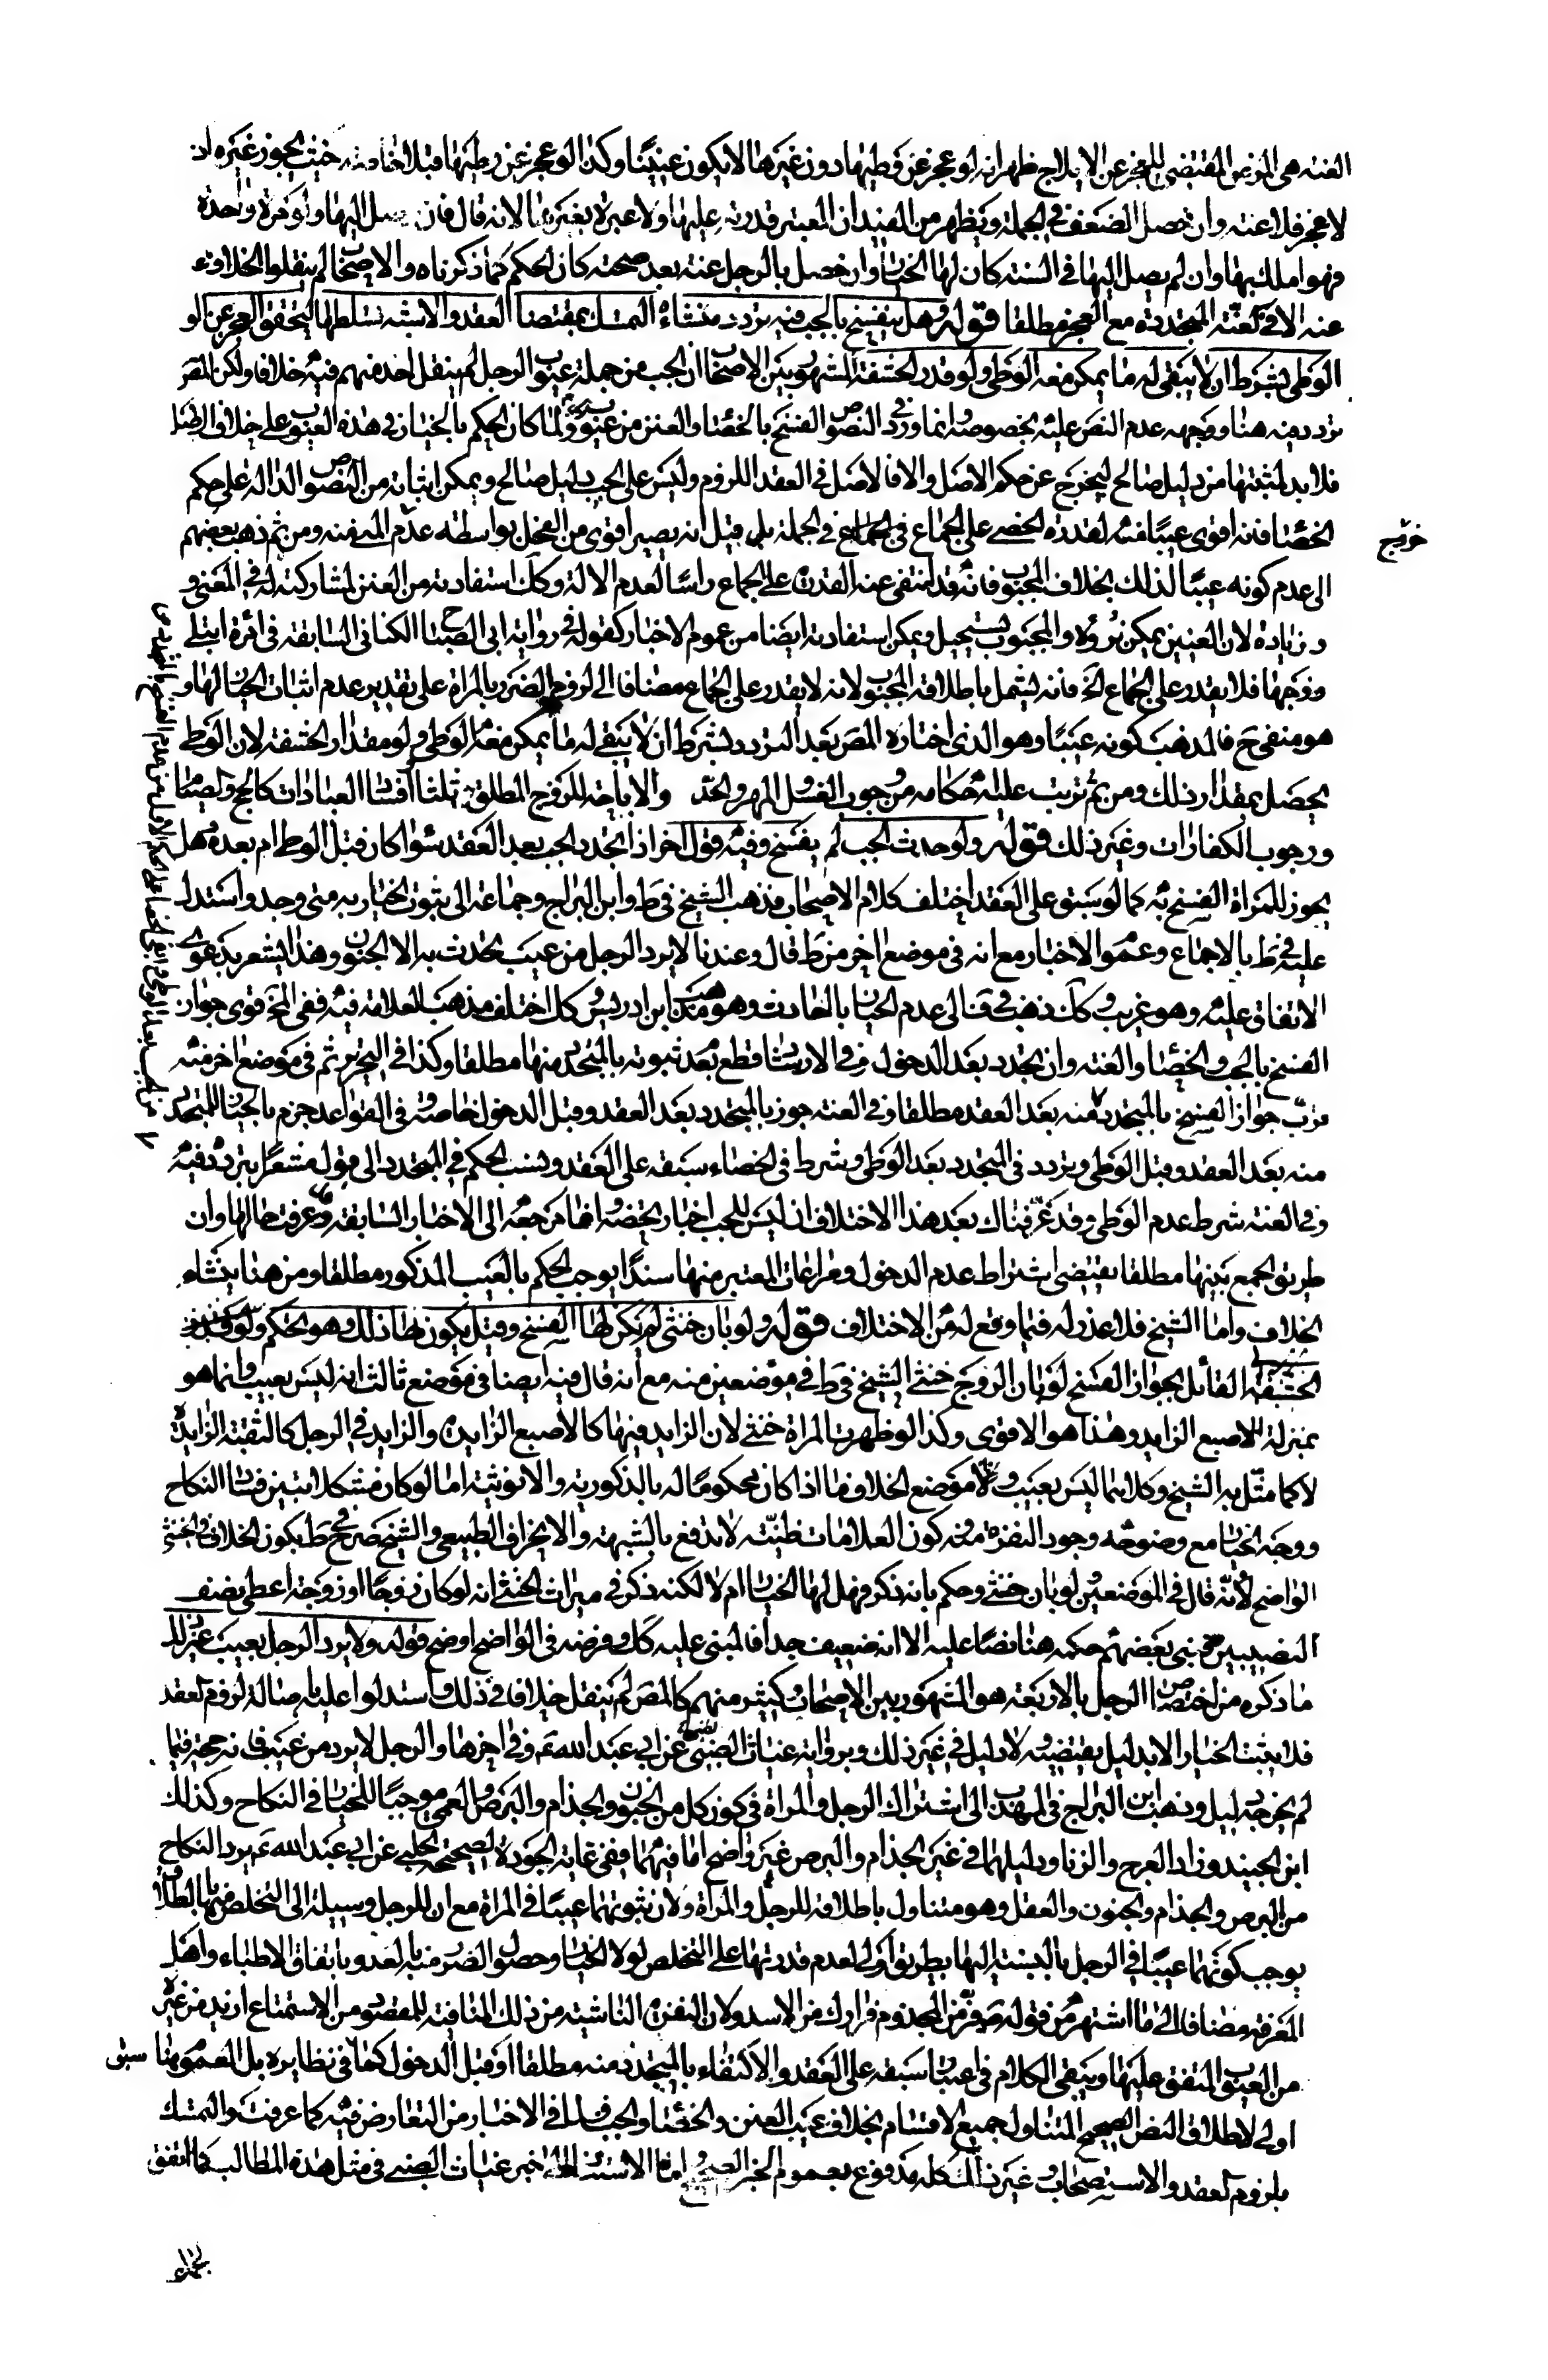 العنه هي المرض المقتضي للعجز عن الايلاج ظهر انه لو عجز عن وطيها دون غيرها لا يكون عنينا وكذا لو عجز عن وطيها قبلا خاصة حيث يجوز غيره اذ
لا عجز فلا عنه وان حصل الضعف في الجملة ويظهر من المفيد ان المعتبر قدرته عليها ولا عبرة بغيرها لانه قال فان وصل اليها ولو مرة واحدة
فهو املك بها وان لم يصل اليها في السنه كان لها الخيار وان حصل بالرجل عنه بعد صحته كان الحكم كما ذكرناه والاصحاب لم ينقلوا الخلاف
عنه الا في العنه المتجددة مع العجز مطلقا قوله وهل يفسخ بالجب فيه تردد منشاؤه التمسك بمقتضا العقد والاشبه تسلطها لتحقق العجز عن الو
الوطي بشرط ان لا يبقى له ما يمكن معه الوطي ولو قدر الحشفة المشهور بين الاصحاب ان الجب من جملة عيوب الرجل لم ينقل احد منهم فيه خلافا ولكن المص
تردد فيه هنا ووجهه عدم النص عليه بخصوصه انما ورد في النصوص الفسخ بالخصا والعنن من عيوبه ولما كان الحكم بالخيار في هذه العيوب على خلاف الاصل
فلا بد لمثبتها من دليل صالح ليخرج عن حكم الاصل والا فالاصل في العقد اللزوم وليس على الجب دليل صالح ويمكن اثباته من النصوص الدالة على حكم
الخصا فانه اقوى عيبا منه لقدرة الخصي على الجماع في الجملة بل قيل انه يصير اقوى من الفحل بواسطة عدم المنى منه ومن ثم ذهب بعضهم
الى عدم كونه عيبا لذلك بخلاف المجبوب فانه قد انتفى عنه القدرة على الجماع راسا لعدم الالة وكك استفادته من العنن لمشاركته له في المعنى و
وزيادة لان العنين يمكن برؤه والمجبوب يستحيل ويمكن استفادته ايضا من عموم الاخبار كقوله في رواية ابي الصباح الكناني السابقة في امرأة ابتلى
زوجها فلا يقدر على الجماع الخ فانه يشمل باطلاقه المجبوب لانه لا يقدر على الجماع مضافا الى لزوم الضرر بالمراة على تقدير عدم اثبات الخيار لها و
هو منفي ح فالمذهب كونه عيبا وهو الذي اختاره المص بعد التردد بشرط ان لا يبقى له ما يمكن معه الوطي ولو مقدار الحشفة لان الوطي
يحصل بمقدار ذلك ومن ثم ترتب عليه احكامه من وجوب الغسل المهر والحد والاباحة للزوج المطلق ثلثا افساد العبادات كالحج والصيام
ووجوب الكفارات وغير ذلك قوله ولو حدث الجب لم يفسخ وفيه قول اخر اذا تجدد الجب بعد العقد سوا كان قبل الوطي ام بعده هل
يجوز للمراة الفسخ به كما لو سبق على العقد اختلف كلام الاصحاب فذهب الشيخ في ط وابن البراج وجماعة الى ثبوت الخيار به متى وجد واستدل
عليه في ط بالاجماع وعموم الاخبار مع انه في موضع اخر من ط قال وعندنا لا يرد الرجل من عيب يحدث به الا الجنون وهذا يشعر بدعوى
الاتفاق عليه وهو غريب وكك ذهب في ف الى عدم الخيار بالحادث وهو مذهب ابن ادريس وكك اختلف مذهب العلامة فيه ففي المخ قوى جواز
الفسخ بالجب والخصا والعنه وان تجدد بعد الدخول وفي الارشاد قطع بعد ثبوته بالمتجدد منها مطلقا وكذا في التحرير ثم في موضع اخر منه
قرب جواز الفسخ بالمتجدد منه بعد العقد مطلقا وفي العنه جوز بالمتجدد بعد العقد وقبل الدخول خاصة وفي القواعد جزم بالخيار للمتجدد
منه بعد العقد وقبل الوطي وتردد في المتجدد بعد الوطي وشرط في الخصاء سبقه على العقد ونسب الحكم في المتجدد الى قول مشعرا بتردده فيه
وفي العنه شرط عدم الوطي وقد عرفناك بعد هذا الاختلاف ان ليس للجب اخبار تخصه وانما مرجعه الى الاخبار السابقة وعرفت حالها وان
طريق الجمع بينها مطلقا يقتضي اشتراط عدم الدخول ومراعات المعتبر منها سندا يوجب الحكم بالعيب المذكور مطلقا ومن هنا ينشاء
الخلاف واما الشيخ فلا عذر له فيما وقع له من الاختلاف قوله ولو بان خنثى لم يكن لها الفسخ وقيل يكون لها ذلك وهو تحكم
القائل بجواز الفسخ لو بان الزوج خنثى الشيخ في ط في موضعين منه مع انه قال فيه ايضا في موضع ثالث انه ليس بعيب وانما هو
بمنزلة الاصبع الزايد وهذا هو الاقوى وكذا لو ظهرت المراة خنثى لان الزايد فيها كالاصبع الزايدة والزايد في الرجل كالثقبة الزايدة
لا كما مثل به الشيخ وكلاهما ليس بعيب وموضع الخلاف ما اذا كان محكوما له بالذكورية والانوثية اما لو كان مشكلا تبين فساد النكاح
ووجه الخيار مع وضوحه وجود النفرة منه كون العلامات ظنية لا تدفع بالشبهة والانحراف الطبيعي والشيخ صرح في ط بكون الخلاف في الخنثى
الواضح لانه قال في الموضعين لو بان خنثى وحكم بانه ذكر فهل لها الخيار ام لا لكنه ذكر في ميراث الخنثى انه لو كان زوجا او زوجة اعطى نصف
النصيبين وبنى بعضهم حكمه هنا نصا عليه الا انه ضعيف جدا فالمبنى عليه كك وفرضه في الواضح اوضح قوله ولا يرد الرجل بعيب غير ذلك
ما ذكره من اختصاص الرجل بالاربعة هو المشهور بين الاصحاب وكثير منهم كالمص لم ينقل خلافا في ذلك واستدلوا عليه باصالة لزوم العقد
فلا يثبت الخيار الا بدليل يقتضيه ولا دليل في غير ذلك وبرواية غياث الضبي عن ابي عبد الله ع وفي اخرها والرجل لا يرد من عيب فانه حجة فيما
لم يخرج بدليل وذهب ابن البراج في المهذب الى اشتراك الرجل والمراة في كون كل من الجنون والجذام والبرص والعمى موجبا للخيار في النكاح وكذلك
ابن الجنيد وزاد العرج والزنا ودليلهما في غير الجذام والبرص غير واضح اما فيهما ففي غاية الجودة لصحيحة الحلبي عن ابي عبد الله ع يرد النكاح
من البرص والجذام والجنون والعفل وهو متناول باطلاقه للرجل والمراة ولان ثبوتهما عيبا في المراة مع ان للرجل وسيلة الى التخلص منها بالطلاق
يوجب كونهما عيبا في الرجل بالنسبة اليها بطريق اولى لعدم قدرتها على التخلص لولا الخيار وحصول الضرر منه بالعدوى باتفاق الاطباء واهل
المعرفة مضافا الى ما اشتهر من قوله ص فر من المجذوم فرارك من الاسد ولان النفرة الناشئة من ذلك المنافية للمقصود من الاستمتاع ازيد من غيره
من العيوب المتفق عليها ويبقى الكلام في اعتبار سبقه على العقد والاكتفاء بالمتجدد منه مطلقا او قبل الدخول كما في نظايره بل العموم هنا
اولى لاطلاق النص الصحيح المتناول لجميع الاقسام بخلاف عيب العنن والخصا والجب لما في الاخبار من التعارض فيه كما عرفت والتمسك
بلزوم العقد والاستصحاب وغير ذلك كله مدفوع بعموم الخبر الصحيح واما الاستناد الى خبر غياث الضبي في مثل هذه المطالب كما اتفق